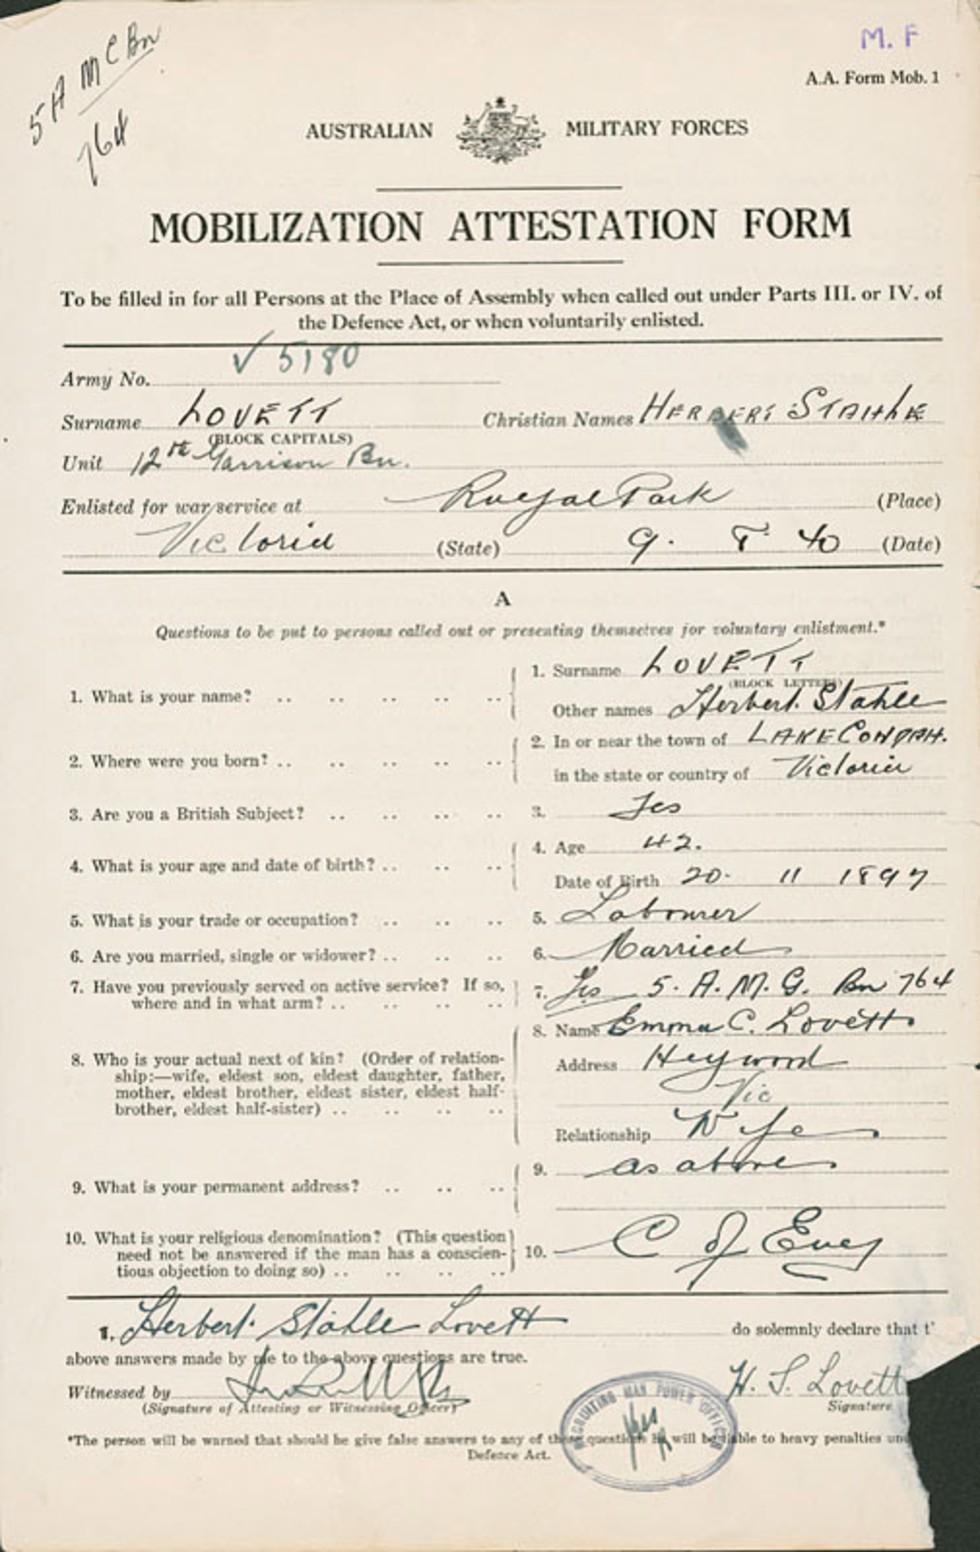 5 A M C Bn
764
M. F
A.A. Form Mob. 1
AUSTRALIAN MILITARY FORCES
MOBILIZATION ATTESTATION FORM
To be filled in for all Persons at the Place of Assembly when called out under Parts III. or IV. of
the Defence Act, or when voluntarily enlisted.
Army No. V 5180
Surname LOVETT Christian Names HERBERT STAHLE
(BLOCK CAPITALS)
Unit 12th Garrison Bn.
Enlisted for war service at Royal Park (Place)
Victoria (State) 9. 8. 40 (Date)
A
Questions to be put to persons called out or presenting themselves for voluntary enlistment.*
1. What is your name? .. .. .. .. .. 1. Surname LOVETT
(BLOCK LETTERS)
Other names Herbert. Stahle
2. Where were you born? .. .. .. .. .. 2. In or near the town of LAKE CONDAH.
in the state or country of Victoria
3. Are you a British Subject? .. .. .. .. 3. Yes
4. What is your age and date of birth? .. .. .. 4. Age 42.
Date of Birth 20. 11 1897
5. What is your trade or occupation? .. .. .. 5. Labourer
6. Are you married, single or widower? .. .. .. 6. Married
7. Have you previously served on active service? If so, 7. Yes 5. A. M. G. Bn 764
where and in what arm? .. .. .. ..
8. Who is your actual next of kin? (Order of relation- 8. Name Emma C. Lovett
ship:—wife, eldest son, eldest daughter, father, Address Heywood
mother, eldest brother, eldest sister, eldest half- Vic
brother, eldest half-sister) .. .. .. .. Relationship Wife
9. What is your permanent address? .. .. .. 9. as above
10. What is your religious denomination? (This question
need not be answered if the man has a conscien- 10. C of Eng
tious objection to doing so) .. .. .. ..
I, Herbert. Stahle Lovett do solemnly declare that t'
above answers made by me to the above questions are true.
Witnessed by H. S. Lovett
(Signature of Attesting or Witnessing Officer) Signature
RECRUITING MAN POWER OFFICER
*The person will be warned that should he give false answers to any of these questions he will be liable to heavy penalties un
Defence Act.